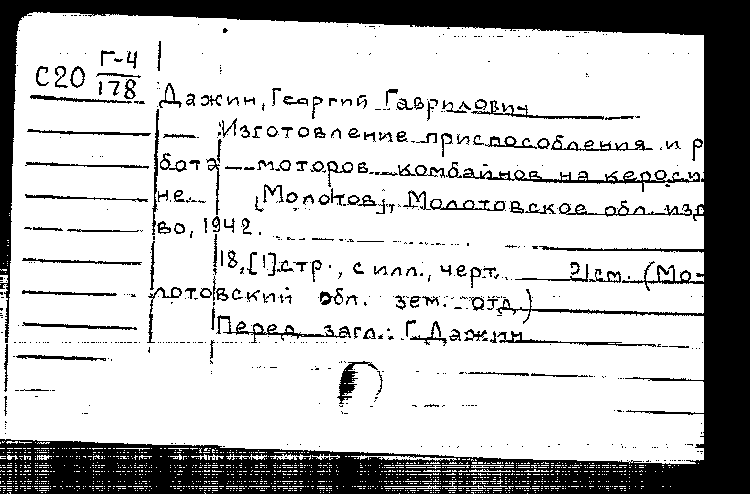 С20 Г-4
178
Дажин, Георгий Гаврилович
Изготовление приспособления и р
бота моторов комбайнов на кероси
не. [Молотов], Молотовское обл. изд
во, 1942.
18,[1]стр., с илл., черт. 21см. (Мо-
лотовский обл. зем. отд.)
Перед загл.: Г. Дажин